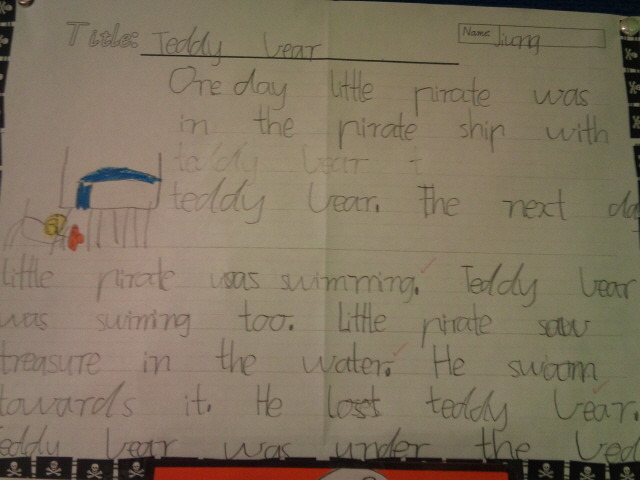 Title: Teddy bear
Name: Jiung
One day little pirate was
in the pirate ship with
teddy bear t
teddy bear. The next da
little pirate was swimming. Teddy bear
was swiming too. Little pirate saw
treasure in the water. He swam
towards it. He lost teddy bear.
eddy bear was under the bed